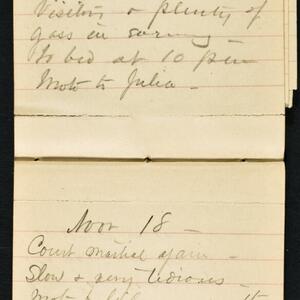 Visitors & plenty of
gass in
To bed at 10 pm
Wrote to Julia -
Nov 18 -
Court martial again -
Slow & very tedious -
Wrote